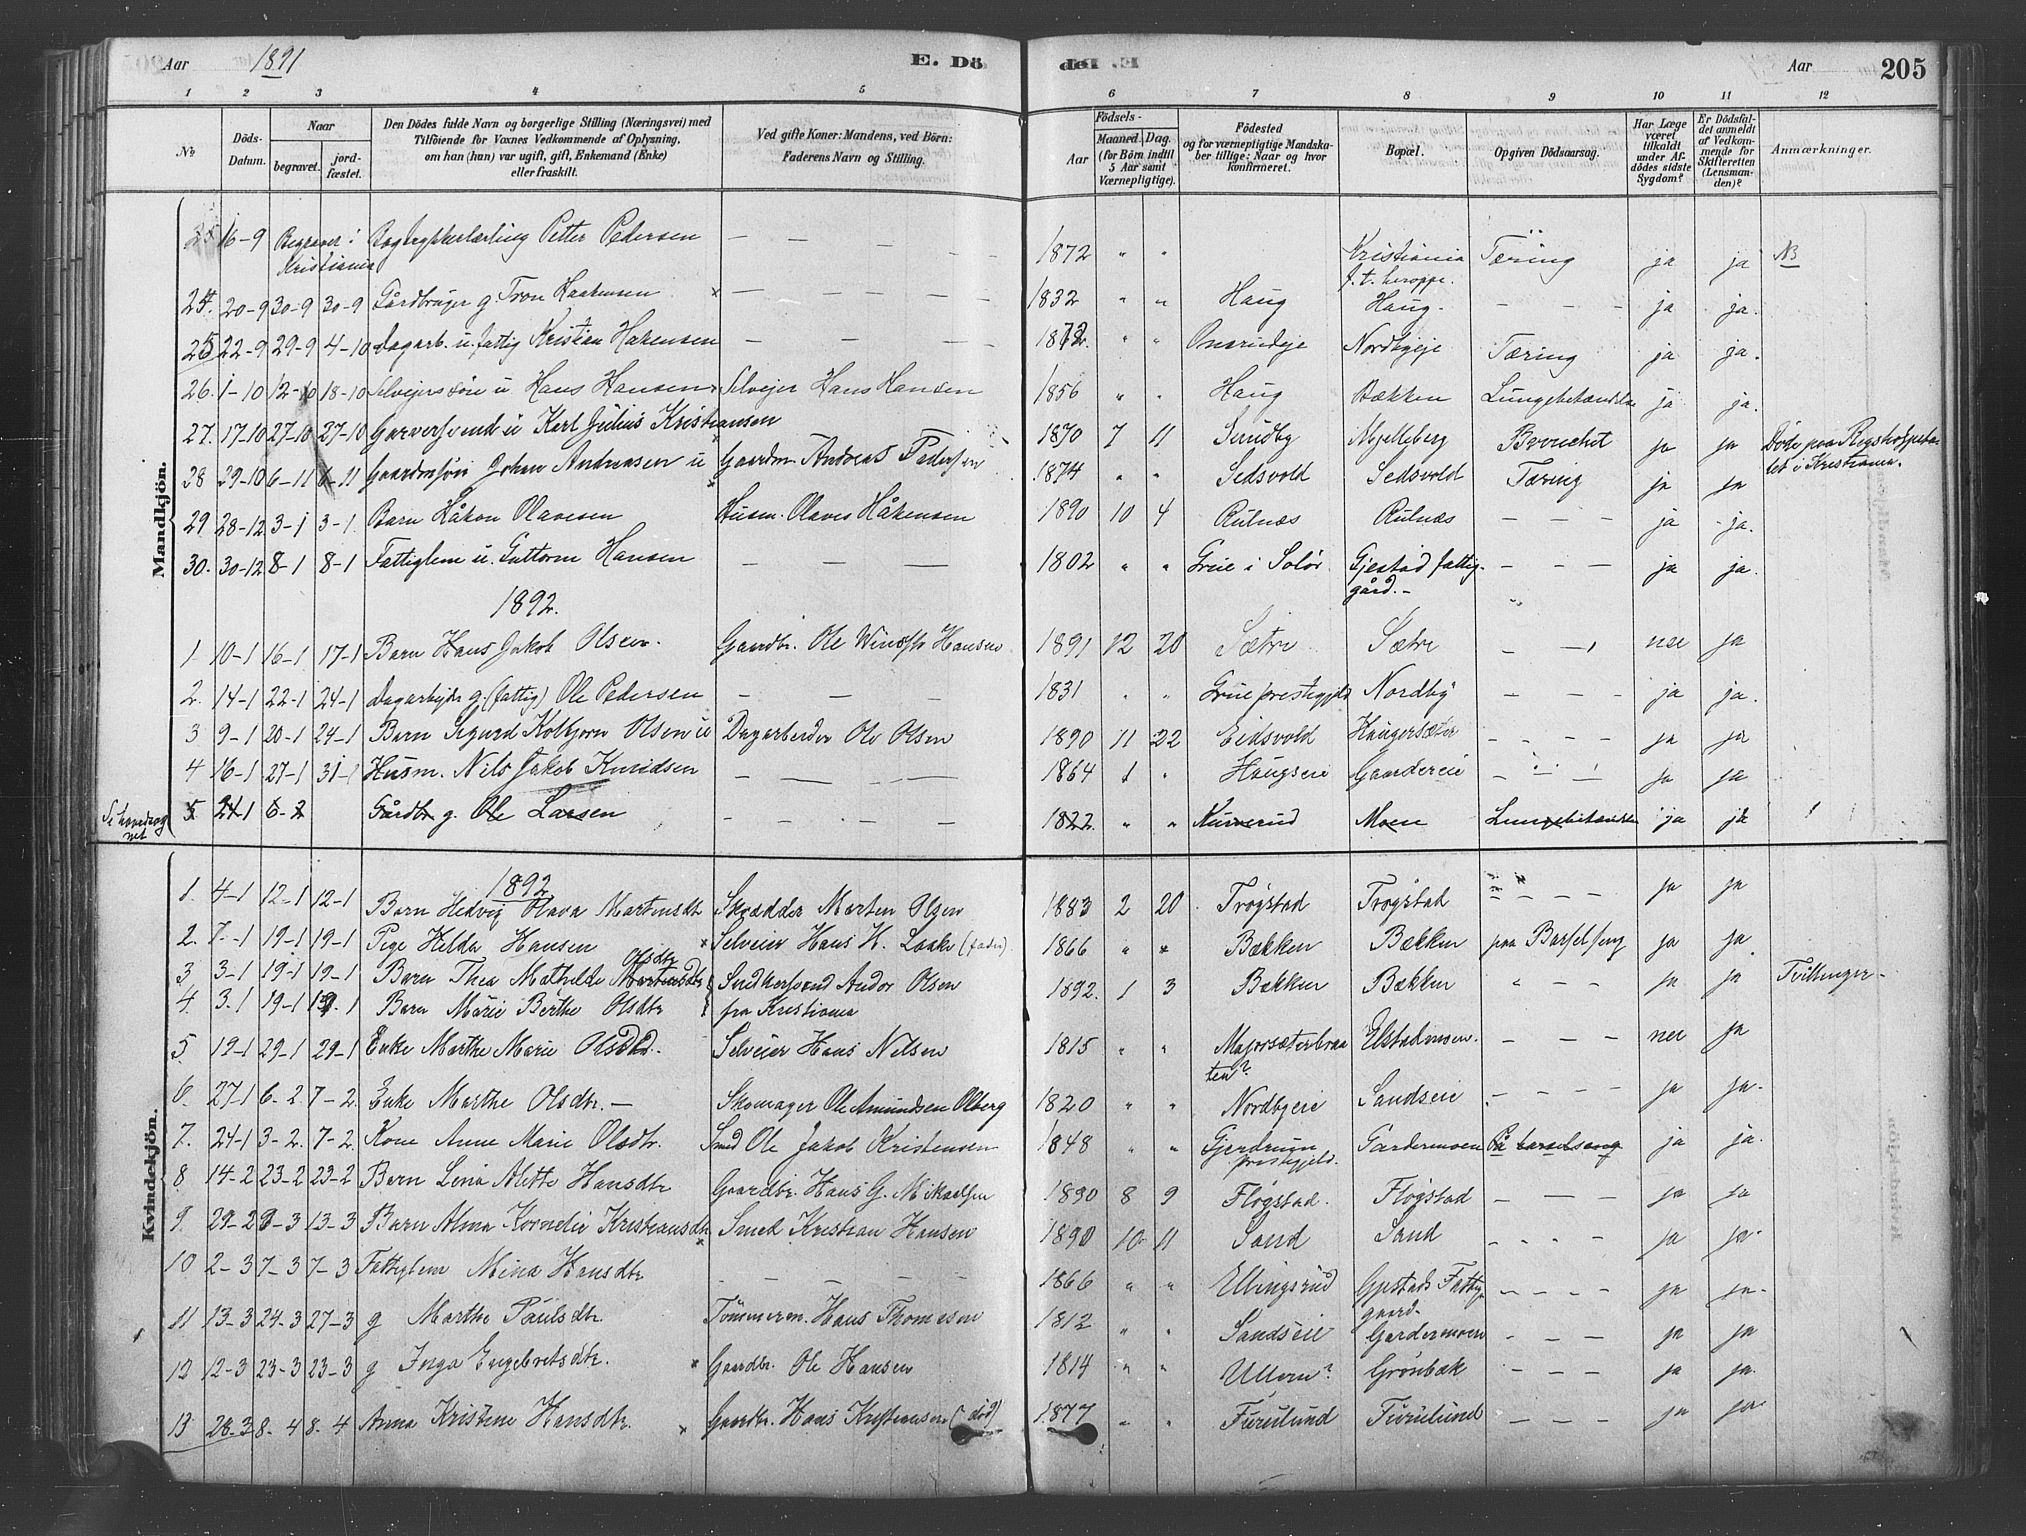 Aar 1891 E. Dö de! E. Aar 205
1 2 3 4 5 6 7 8 9 10 11 12
No Döds-Datum. Naar begravet. jord-fæstet. Den Dödes fulde Navn og borgerlige Stilling (Næringsvei) med Tilföiende for Voxnes Vedkommende af Oplysning, om han (hun) var ugift, gift, Enkemand (Enke) eller fraskilt. Ved gifte Koner: Mandens, ved Börn: Faderens Navn og Stilling. Födsels- Aar Maaned Dag. (for Börn indtil 5 Aar samt Værnepligtige). Födested og for værnepligtige Mandskaber tillige: Naar og hvor konfirmeret. Bopæl. Opgiven Dödsaarsag. Har Læge været tilkaldt under Afdödes sidste Sygdom? Er Dödsfaldet anmeldt af Vedkommende for Skifteretten (Lensmanden)? Anmærkninger.
Mandkjön.
16-9 Begravet i Kristiania Petter Pedersen — — — — 1872 " " Kristiania f. t. heroppe. Tæring ja ja NB
24. 20-9 30-9 30-9 Gårdbruger g. Tron Haakensen — — — — — 1832 " " Haug Haug. — — — ja ja.
25 22-9 29-9 4-10 Dagarb. u. fattig Kristian Hakensen — — — 1872. " " Onsrudeje Nordbyeje Tæring ja ja.
26. 1-10 12-10 18-10 Selveierssön u Hans Hansen Selvejer Hans Hansen 1856 " " Haug Bækken Lungebetændelse ja ja.
27. 17-10 27-10 27-10 Garversvend u Karl Julius Kristiansen 1870 7 11 Mjelleberg ja ja Döde paa Rigshospitalet i Kristiania.
28 29-10 6-11 6-11 Gaardmsön Johan Andreasen u Gaardm. Andreas Pedersen 1874 " " Sedsvold Sedsvold Tæring ja ja
29 28-12 3-1 3-1. Barn Håkon Olavesen Husm. Olaves Håkensen 1890 10 4 Rulnæs Rulnæs — — — ja ja.
30. 30-12 8-1 8-1 Fattiglem u. Guttorm Hansen — — — 1802 " " Grue i Solör. Gjestad fattiggård. — — — — ja ja.
1892.
1 10-1 16-1 17-1 Barn Hans Jakob Olsen. Gaardbr. Ole Hansen 1891 12 20 Sætre Sætre — — nei ja
2. 14-1 22-1 24-1 Dagarbejder g. (fattig) Ole Pedersen — — — 1831 " " Grue prestegjeld Nordby — — — ja ja.
3 9-1 20-1 24-1 Barn Sigurd Kolbjorn Olsen u Dagarbeider Ole Olsen 1890 11 22 Eidsvold Haugersæter — — — — ja ja
4 16-1 27-1 31-1 Husm. Nils Jakob Knudsen — — — 1864 1 " Haugseie Gaardereie — — — ja ja
5 24-1 6-2 Gårdbr. g. Ole Larsen — — — — — 1822. " " Moen Lungebetændelse ja ja
Kvindekjön.
1892
1. 4-1 12-1 12-1 Barn Hedvig Olava Martinsdtr Skrædder Morten Olsen 1883 2 20. Trøgstad Trøgstad — — — — ja ja
2. 7-1 19-1 19-1 Pige Helda Hansen Selveier Hans H. Laake (fader) 1866 " " Bækken Bækken paa Barselseng ja ja.
3 3-1 19-1 19-1 Barn Thea Mathilde Martinsdtr Olsdtr Snedkersvend Andor Olsen 1892. 1 3 Bækken Bækken " — — ja ja Tvillinger—
4. 3.1 19-1 19-1 Barn Marie Berthe Olsdtr fra Kristiania
5 19-1 29-1 29-1 Enke Marthe Marie Olsdtr. Selveier Hans Nilsen 1815 " " Majorsæterbraaten? Elstadmoen. — — — nei ja
6. 27-1 6-2 7-2. Enke Marthe Olsdtr. — Skomager Ole Amundsen Olberg 1820 " " Nordbyeie Sandseie — — — ja ja.
7. 24-1 3-2. 7-2. Kone Anne Marie Olsdtr. Smed Ole Jakob Kristensen 1848 " " Gjerdrum prestegjeld. Gardermoen På barselseng ja ja.
8 14-2 23-2 23-2 Barn Lina Alette Hansdtr Gaardbr. Hans G. Mikaelsen 1890 8 9 Fløgstad. Fløgstad — — — ja ja
9. 29-2 3 13-3 Barn Alma Kornelie Kristiansdtr Smed Kristian Hansen 1890 10 11 Sand Sand — — — ja ja.
10 2-3 7-3 7-3 Fattiglem Mina Hansdtr — — — — 1866 " " Ellingsrud Gjestads Fattiggaard. — — — — ja ja.
11 13-3 24-3 27-3 g Marthe Paulsdtr. Tömmerm. Hans Thomesen 1812 " " Sandseie Gardermoen — — — — ja ja
12 12-3 23-3 23-3 g Inga Engebretsdtr. Gaardbr. Ole Hansen 1814 " " Ullern? Grönbæk — — — ja ja.
13 28-3 8-4 8-4 Anna Kristine Hansdtr. Gaardbr. Hans Kristiansen (død) 1877 " " Furulund Furulund — — — ja ja